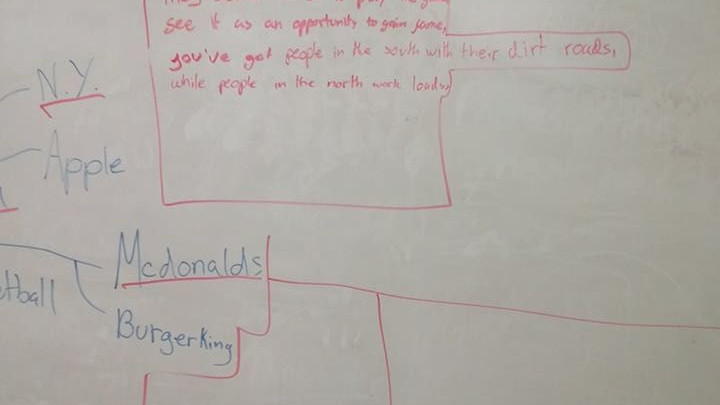 see it as an opportunity to gain fame,
you've got people in the south with their dirt roads,
while people in the north work loads,
N.Y.
Apple
Mcdonalds
tball
BurgerKing